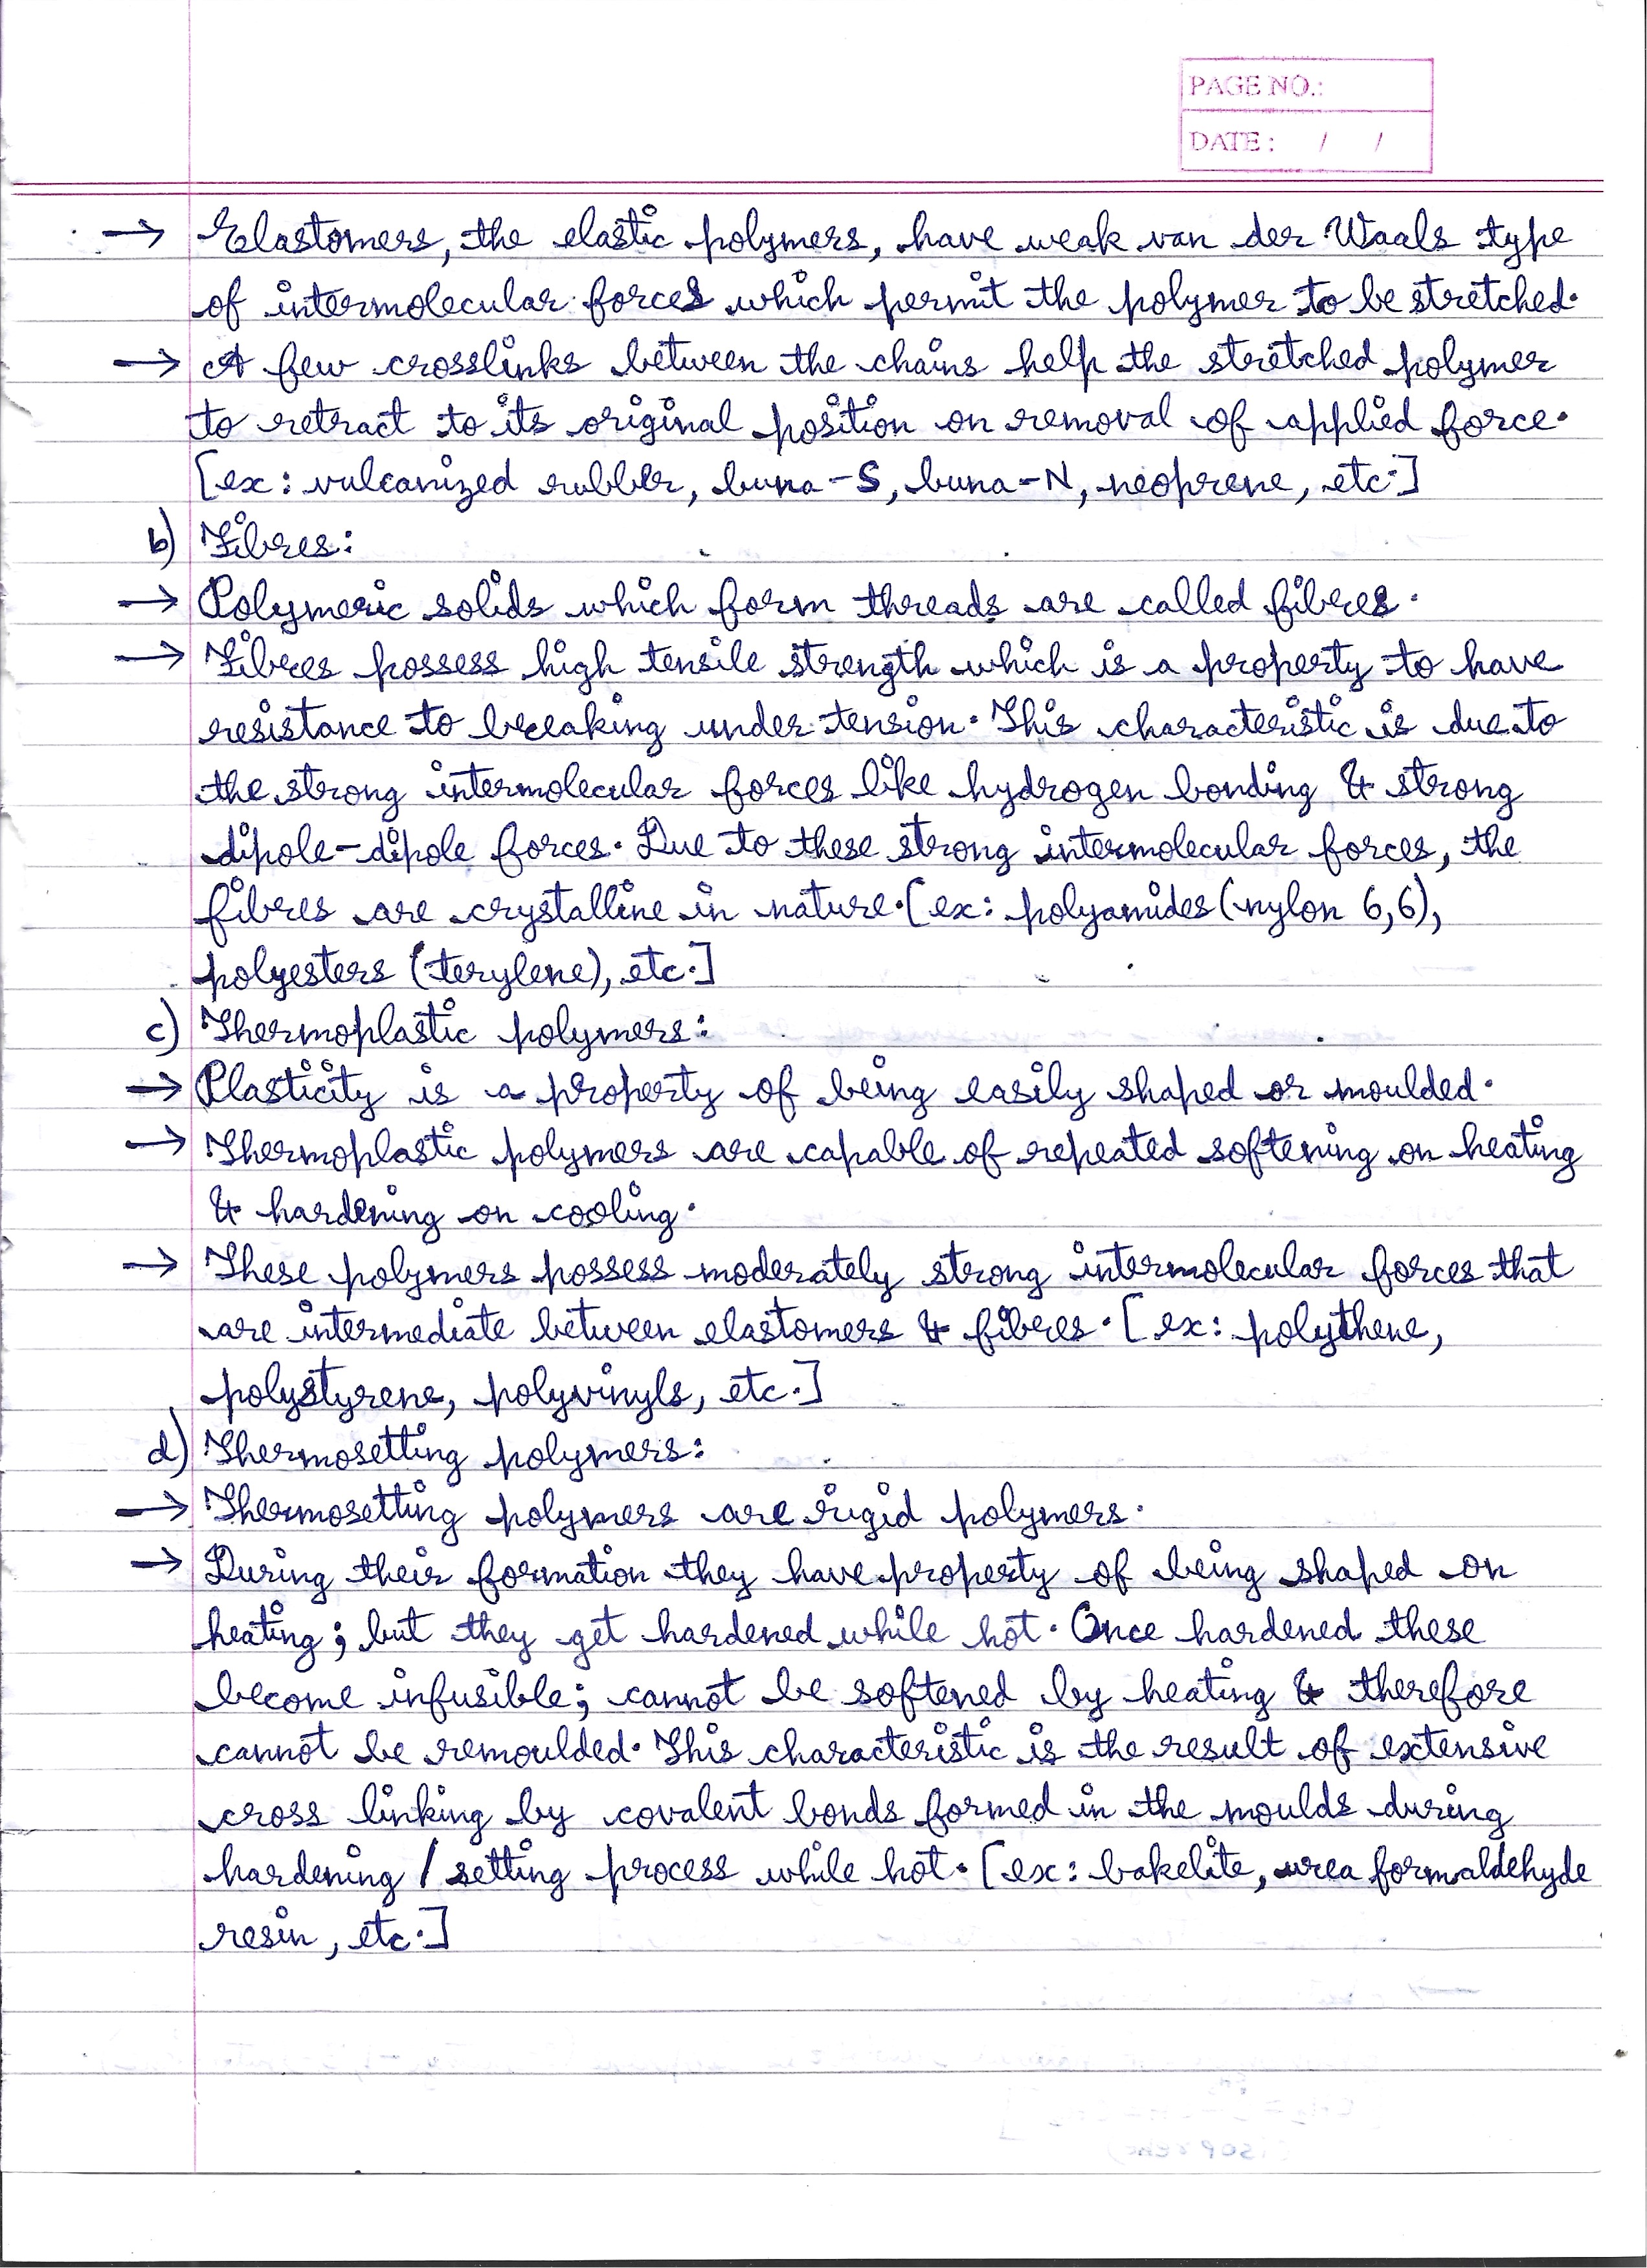 PAGE NO.:
DATE : / /
→ Elastomers, the elastic polymers, have weak van der Waals type
of intermolecular forces which permit the polymer to be stretched.
→ A few crosslinks between the chains help the stretched polymer
to retract to its original position on removal of applied force.
[ex: vulcanized rubber, buna-S, buna-N, neoprene, etc.]
b) Fibres:
→ Polymeric solids which form threads are called fibres.
→ Fibres possess high tensile strength which is a property to have
resistance to breaking under tension. This characteristic is due to
the strong intermolecular forces like hydrogen bonding & strong
dipole-dipole forces. Due to these strong intermolecular forces, the
fibres are crystalline in nature. [ex: polyamides (nylon 6,6),
polyesters (terylene), etc.]
c) Thermoplastic polymers:
→ Plasticity is a property of being easily shaped or moulded.
→ Thermoplastic polymers are capable of repeated softening on heating
& hardening on cooling.
→ These polymers possess moderately strong intermolecular forces that
are intermediate between elastomers & fibres. [ex: polythene,
polystyrene, polyvinyls, etc.]
d) Thermosetting polymers:
→ Thermosetting polymers are rigid polymers.
→ During their formation they have property of being shaped on
heating; but they get hardened while hot. Once hardened these
become infusible; cannot be softened by heating & therefore
cannot be remoulded. This characteristic is the result of extensive
cross linking by covalent bonds formed in the moulds during
hardening / setting process while hot. [ex: bakelite, urea formaldehyde
resin, etc.]